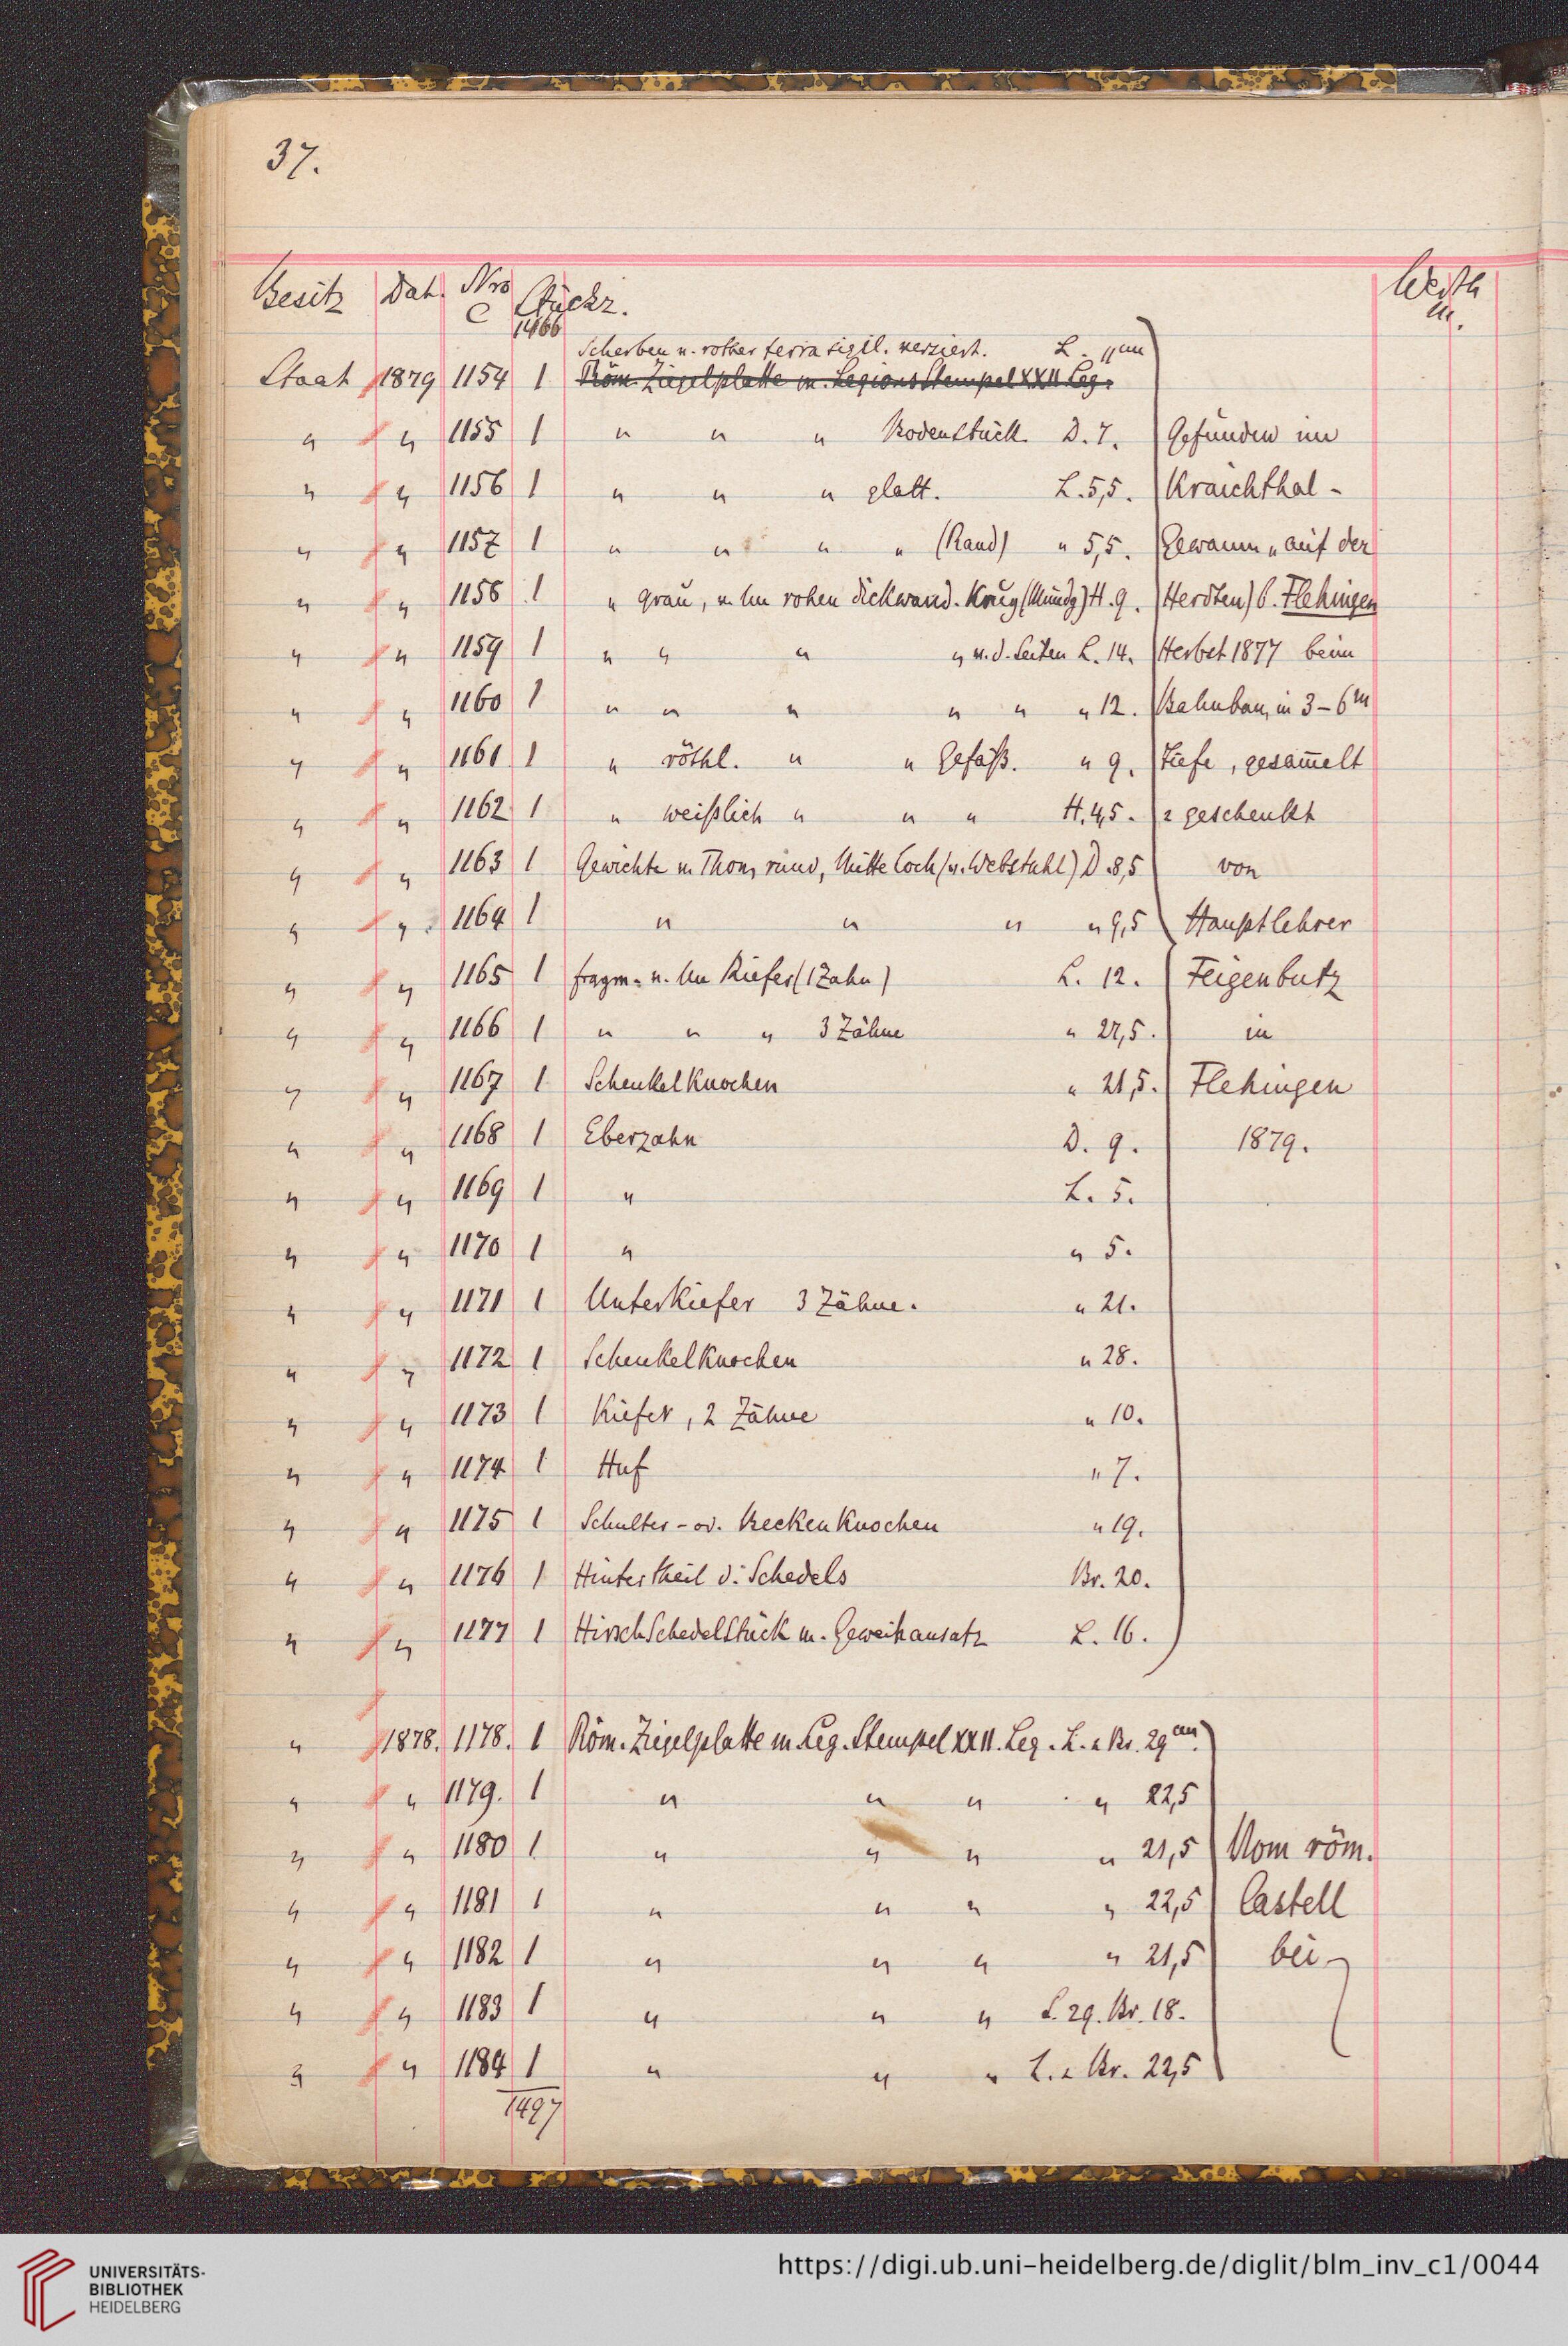 37.
Besitz Dat. Nro C Stückz. Werth M.
1466
Scherben v. rother terra sigil. verziert. L. 11 cm
Staat 1879 1154 1 Röm. Ziegelplatte m. Legions Stempel XXII Leg.
" " 1155 1 " " " Bodenstück D. 7. Gefunden im
" " 1156 1 " " " glatt. L. 5,5. Kraichthal-
" " 1157 1 " " " " (Rand) " 5,5. Gewann „auf der
" " 1158 1 " grau, v. rohen dickwand. Krug (Mündg) H. 9. Herdten) b. Flehingen
" " 1159 1 " " " " v. d. Seiten L. 14. Herbst 1877 beim
" " 1160 1 " " " " " " 12. Bahnbau, in 3-6 m
" " 1161 1 " röthl. " " Gefäß. " 9. Tiefe, gesam̄elt
" " 1162 1 " weißlich " " " H. 4,5. geschenkt
" " 1163 1 Gewichte v. Thon, rund, Mitte Loch (v. Webstuhl) D. 8,5 von
" " 1164 1 " " " " 9,5 Hauptlehrer
" " 1165 1 fragm. Kiefer (1 Zahn) L. 12. Feigenbutz
" " 1166 1 " " " 3 Zähne " 27,5. in
" " 1167 1 Schenkelknochen " 21,5. Flehingen
" " 1168 1 Eberzahn D. 9. 1879.
" " 1169 1 " L. 5.
" " 1170 1 " " 5.
" " 1171 1 Unterkiefer 3 Zähne. " 21.
" " 1172 1 Schenkelknochen " 28.
" " 1173 1 Kiefer, 2 Zähne " 10.
" " 1174 1 Huf " 7.
" " 1175 1 Schulter- od. Beckenknochen " 19.
" " 1176 1 Hintertheil d. Schedels Br. 20.
" " 1177 1 HirschSchedelstück m. Geweihansatz L. 16.
" 1878. 1178. 1 Röm. Ziegelplatte m. Leg. Stempel XXII. Leg. L. u Br. 29 cm.
" " 1179. 1 " " " " 22,5
" " 1180 1 " " " " 21,5 Vom röm.
" " 1181 1 " " " " 22,5 Castell
" " 1182 1 " " " " 21,5 bei
" " 1183 1 " " " L. 29. Br. 18.
" " 1184 1 " " " L. u Br. 22,5
1497
UNIVERSITÄTS-
BIBLIOTHEK
HEIDELBERG
https://digi.ub.uni-heidelberg.de/diglit/blm_inv_c1/0044